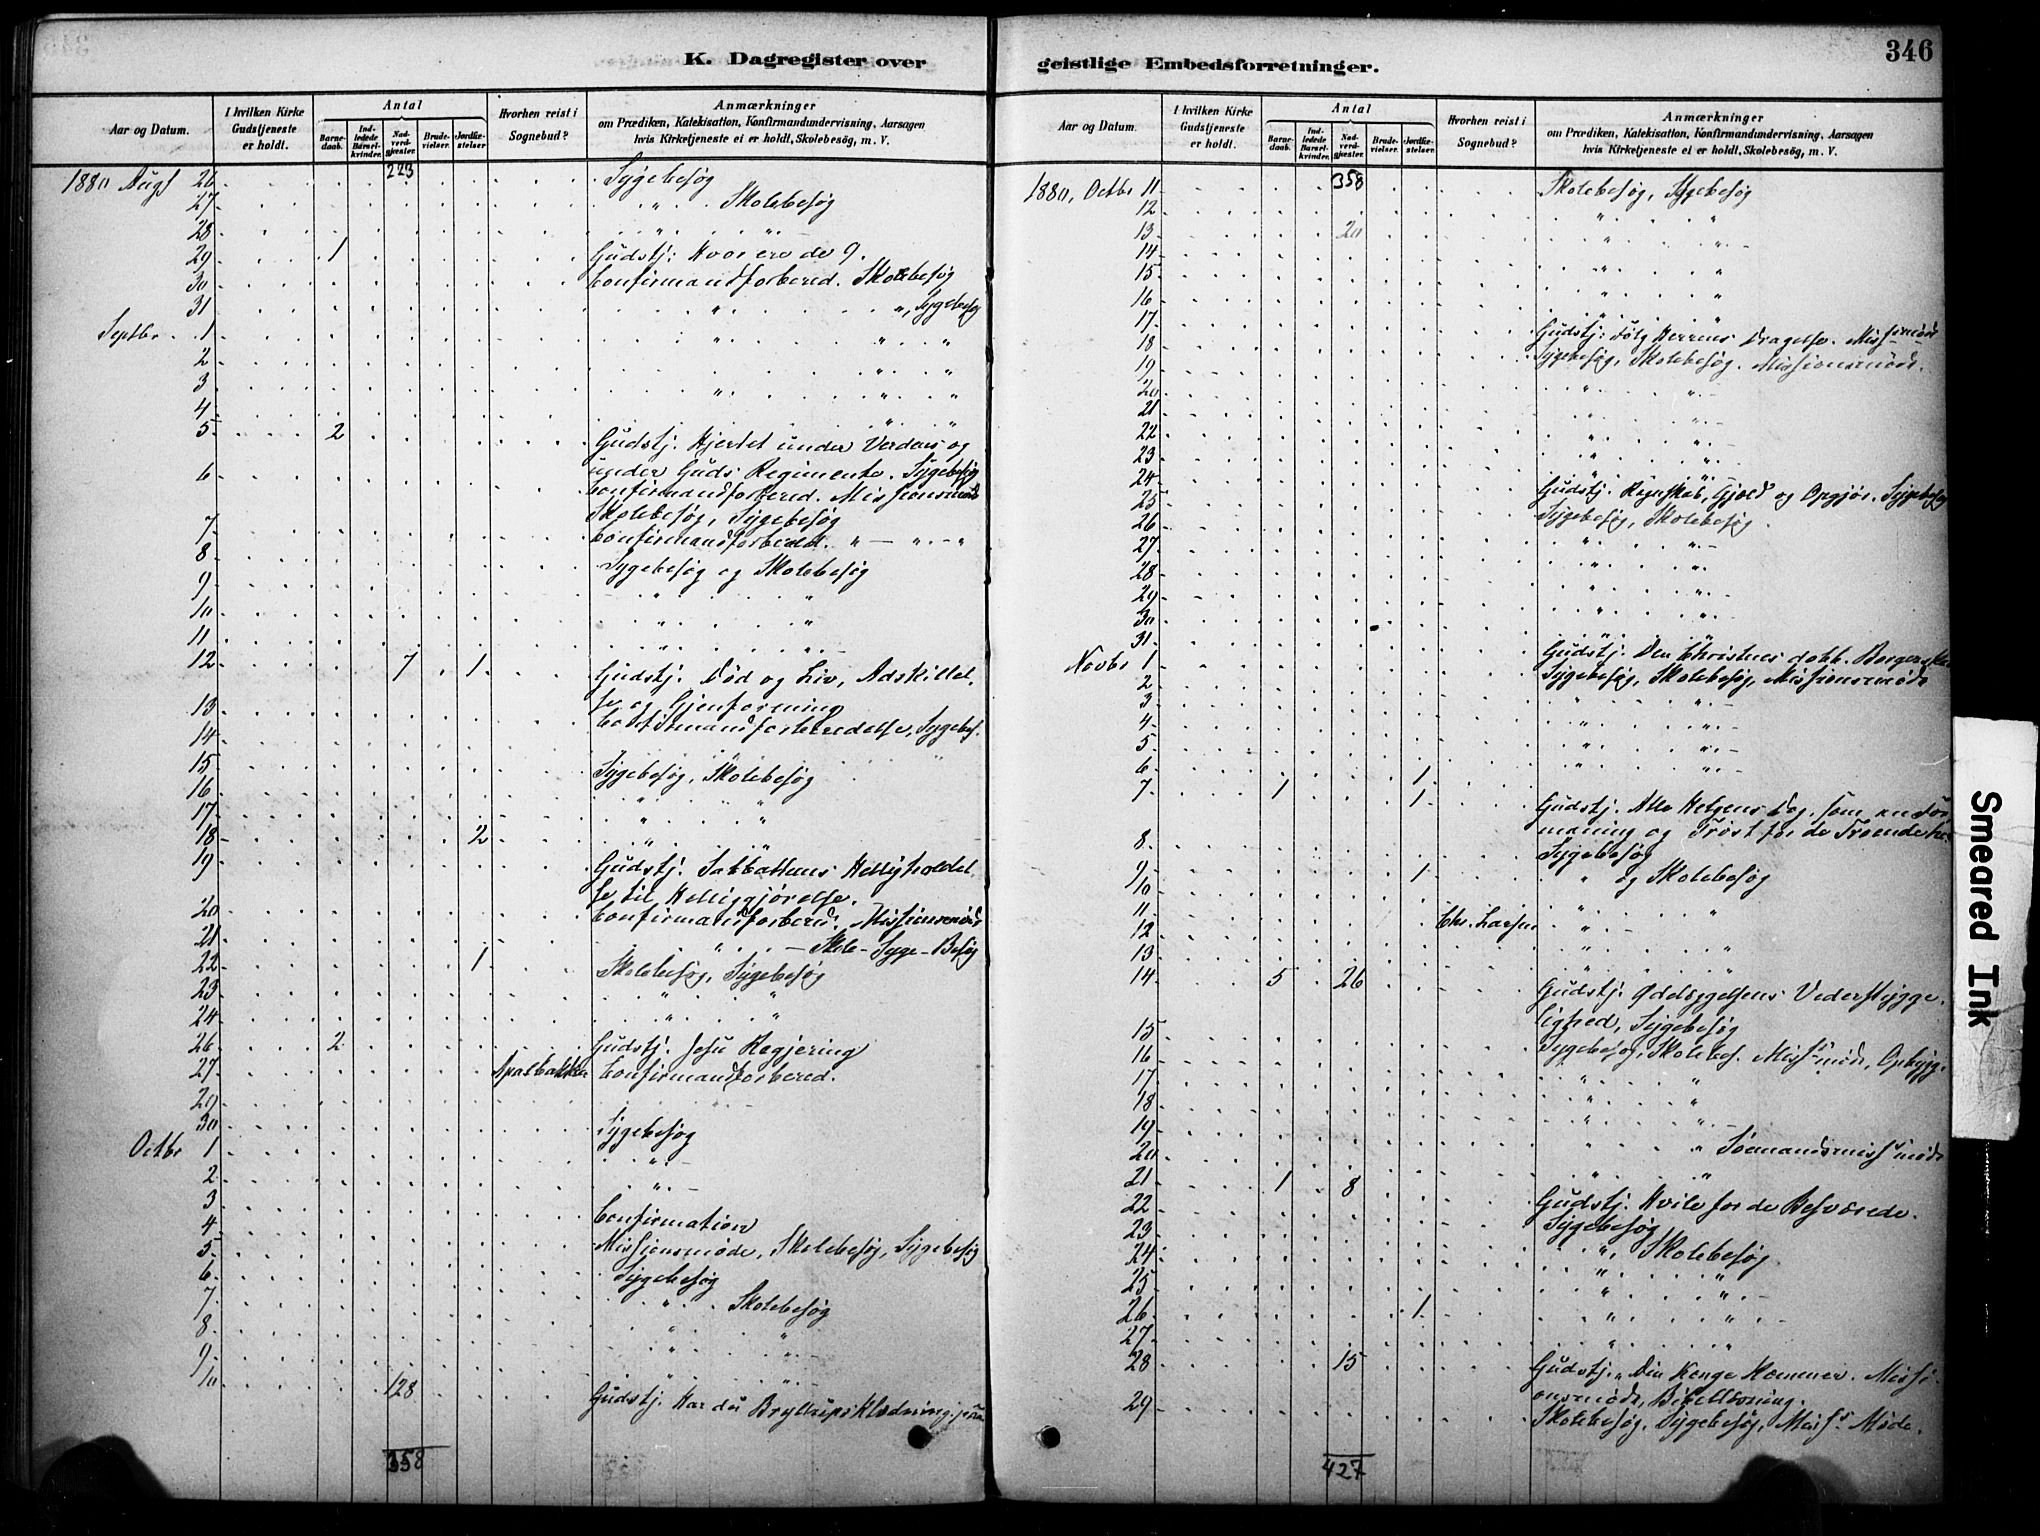 K. Dagregister over
Aar og Datum.
I hvilken Kirke Gudstjeneste er holdt.
Antal
Barne-daab.
Ind-ledede Barsel-kvinder.
Nad-verd-gjæster.
Brude-vielser.
Jordfæ-stelser
Hvorhen reist i Sognebud?
Anmærkninger
om Prædiken, Katekisation, Konfirmandundervisning, Aarsagen
hvis Kirketjeneste ei er holdt, Skolebesög, m. V.
223
1880 Augs 26 Sygebesøg
27 " Skolebesøg
28 " "
29 1 Gudstj: Hvor ere de 9.
30 Confirmandforbered. Skolebesøg
31 " ", Sygebesøg
Septbr 1 " " "
2 " "
3 " " "
4 " "
5 2 Gudstj. Hjertet under Verdens og
under Guds Regimente. Sygebesøg
6 Confirmandforbered. Missionsmøde
Skolebesøg, Sygebesøg
7 Confirmandforbered. " — " — "
8 Sygebesøg og Skolebesøg
9 " "
10 " "
11 " "
12 7 1 Gudstj. Død og Liv, Adskillel-
se og Gjenforening
13 Confirmandforberedelse, Sygebes.
14 " "
15 Sygebesøg, Skolebesøg
16 " "
17 " "
18 2 " "
19 Gudstj. Sabbathens Helligholdel
se til Helliggjørelse.
20 Confirmandforbered. Missionsmøde
21 " — Skole-Syge-Besøg
22 1 Skolebesøg, Sygebesøg
23 " "
24 " "
26 2 Gudstj. Jesu Regjering
27 Confirmandforbered.
29
30 Sygebesøg
Octbr 1 "
2 "
3 Confirmation
4 Missionsmøde, Skolebesøg, Sygebesøg
5 Sygebesøg
6 " Skolebesøg
7 " "
8 " "
9 " "
10 128 Gudstj. Har du Bryllupsklædning
358
geistlige Embedsforretninger.
346
Aar og Datum.
I hvilken Kirke Gudstjeneste er holdt.
Antal
Barne-daab.
Ind-ledede Barsel-kvinder.
Nad-verd-gjæster.
Brude-vielser.
Jordfæ-stelser
Hvorhen reist i Sognebud?
Anmærkninger
om Prædiken, Katekisation, Konfirmandundervisning, Aarsagen
hvis Kirketjeneste ei er holdt, Skolebesög, m. V.
1880, Octbr 11 358 Skolebesøg, Sygebesøg
12 " "
13 20 " "
14 " "
15 " "
16 " "
17 Gudstj: Følg Herrens Dragelse. Missmøde
18 Sygebesøg, Skolebesøg. Missionsmøde.
19 " "
20 " "
21 " "
22 " "
23 " "
24 Gudstj. Regnskab, Gjæld og Opgjør. Sygebesøg
25 Sygebesøg, Skolebesøg.
26 " "
27 " "
28 " "
29 " "
30 " "
31 Gudstj. Den Christnes dobb. Borgerska
Novbr 1 Sygebesøg, Skolebesøg, Missionsmøde
2 " "
3 " "
4 " "
5 " "
6 1
7 1 1 Gudstj. Alle Helgens Dag, som en For
maning og Trøst for de Troende
8 Sygebesøg
9 1 " og Skolebesøg
10 " "
11 Chr. Larsen "
12 " "
13 " "
14 5 26 Gudstj. Ødelæggelsens Vederstygge-
lighed, Sygebesøg
15 Sygebesøg, Skolebes. Missmøde, Opbygg.
16 " "
17 " "
18 " "
19 " Sømandsmissmøde
20 " "
21 1 8 Gudstj. Hvile for de Besværede.
22 Sygebesøg
23 ", Skolebesøg
24 " "
25 " "
26 1 " "
27 " "
28 15 Gudstj. Din Konge kommer. Missi-
onsmøde, Bibellæsning.
29 Skolebesøg, Sygebesøg, Miss. Møde.
427
Smeared Ink